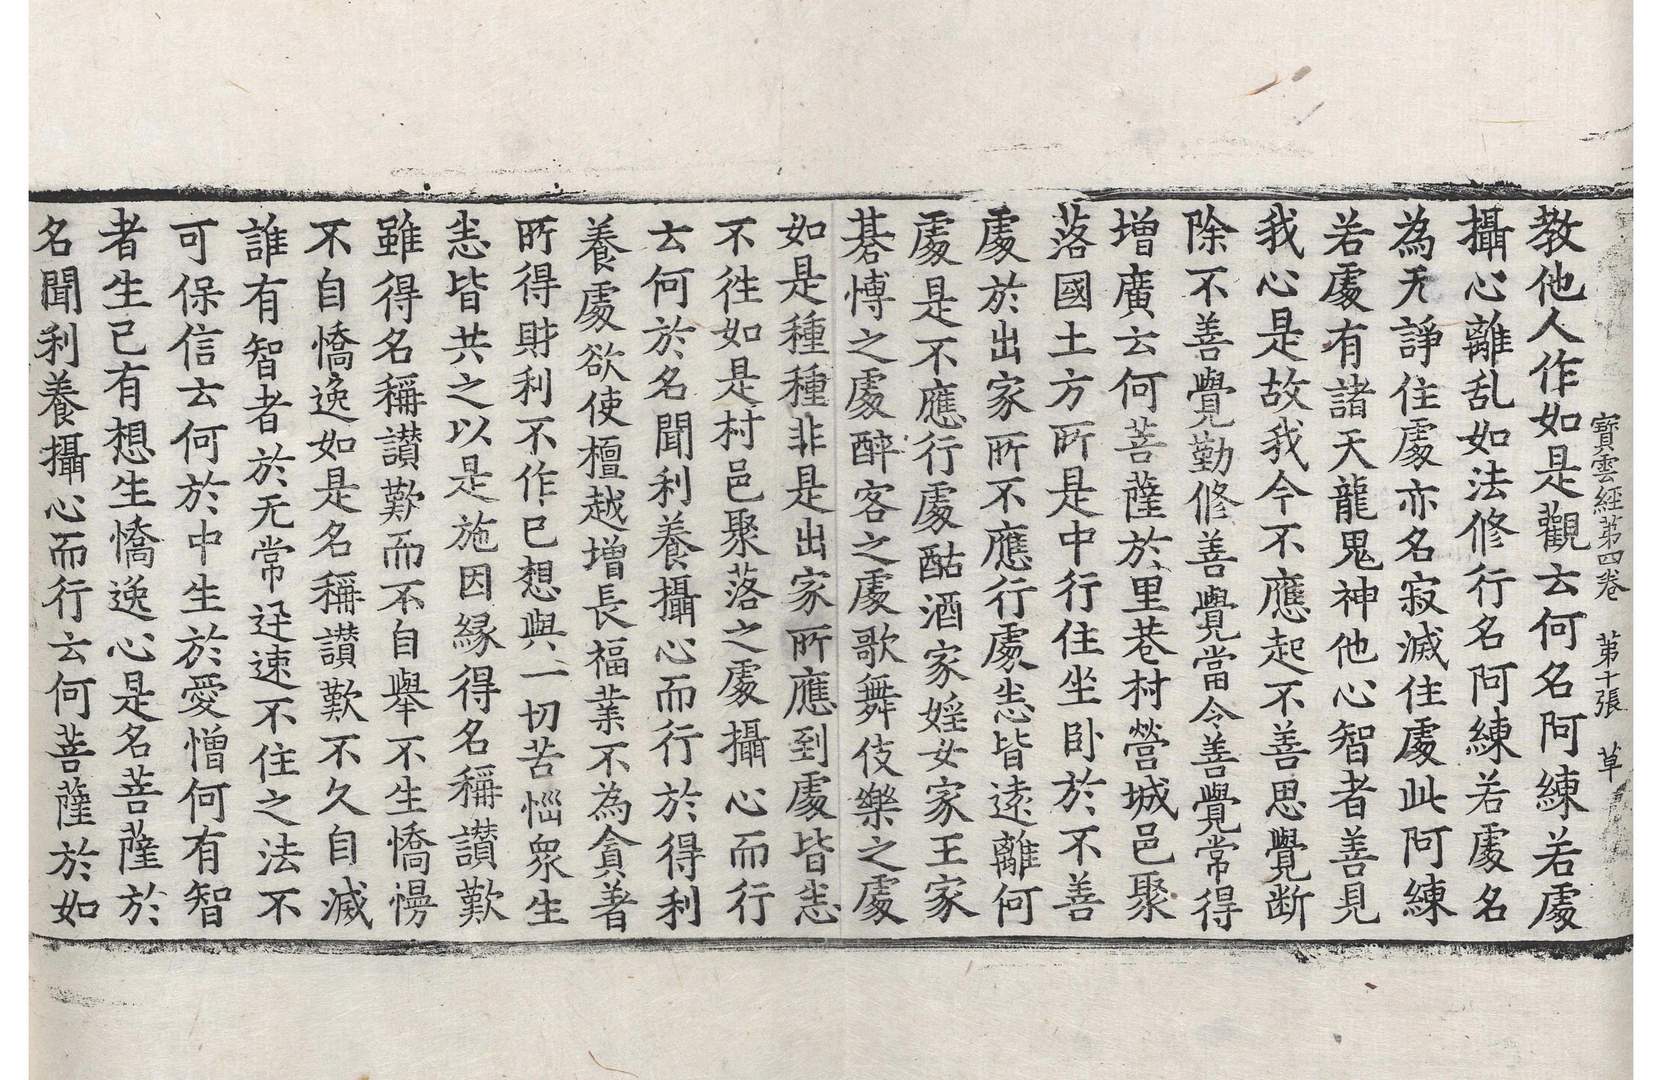 寶雲經第四卷　第十張　草
教他人作如是觀云何名阿練若處
攝心離乱如法修行名阿練若處名
為无諍住處亦名寂滅住處此阿練
若處有諸天龍鬼神他心智者善見
我心是故我今不應起不善思覺断
除不善覺勤修善覺當令善覺常得
增廣云何菩薩於里巷村營城邑聚
落國土方所是中行住坐卧於不善
處於出家所不應行處恙皆遠離何
處是不應行處酤酒家婬女家王家
碁博之處醉客之處歌舞伎樂之處
如是種種非是出家所應到處皆恙
不往如是村邑聚落之處攝心而行
云何於名聞利養攝心而行於得利
養處欲使檀越增長福業不為貪著
所得財利不作己想與一切苦惱衆生
恙皆共之以是施因緣得名稱讃歎
雖得名稱讃歎而不自舉不生憍慢
不自憍逸如是名稱讃歎不久自滅
誰有智者於无常迅速不住之法不
可保信云何於中生於愛憎何有智
者生已有想生憍逸心是名菩薩於
名聞利養攝心而行云何菩薩於如